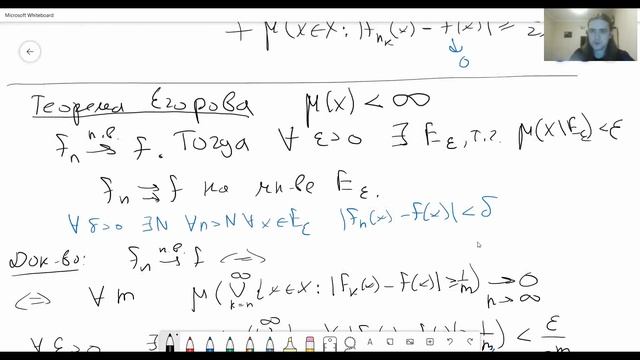 Microsoft Whiteboard
+ μ(x∈X: |f_{n_k}(x) − f(x)| ≥
0
Теорема Егорова μ(X) < ∞
f_n →^{п.в.} f. Тогда ∀ ε>0 ∃ E_ε, т.ч. μ(X\E_ε) < ε
f_n ⇉ f на мн-ве E_ε.
∀δ>0 ∃N ∀n>N ∀x∈E_ε |f_n(x) − f(x)| < δ
Док-во: f_n →^{п.в.} f ⟺
⟺ ∀m μ(⋃_{k=n}^∞ {x∈X: |f_k(x) − f(x)| ≥ 1/m}) → 0 n→∞
∀ε>0 ∃ < ε